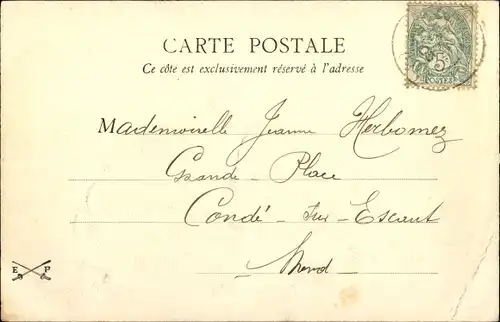 CARTE POSTALE
Ce côté est exclusivement réservé à l'adresse
5c
POSTES
Mademoiselle Jeanne Herbomez
Grande - Place
Condé - sur - Escaut
Nord -
E P